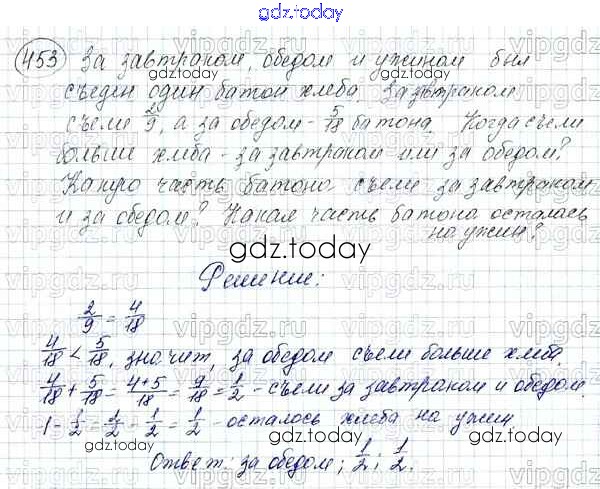 gdz.today
453 За завтраком, обедом и ужином был
съеден один батон хлеба. За завтраком
съели 2/9, а за обедом - 5/18 батона. Когда съели
больше хлеба - за завтраком или за обедом?
Какую часть батона съели за завтраком
и за обедом? Какая часть батона осталась
на ужин?
gdz.today
Решение:
2/9 = 4/18
4/18 < 5/18, значит, за обедом съели больше хлеба.
4/18 + 5/18 = 4+5/18 = 9/18 = 1/2 - съели за завтраком и обедом.
1 - 1/2 = 2/2 - 1/2 = 1/2 - осталось хлеба на ужин.
Ответ: за обедом; 1/2; 1/2.
gdz.today